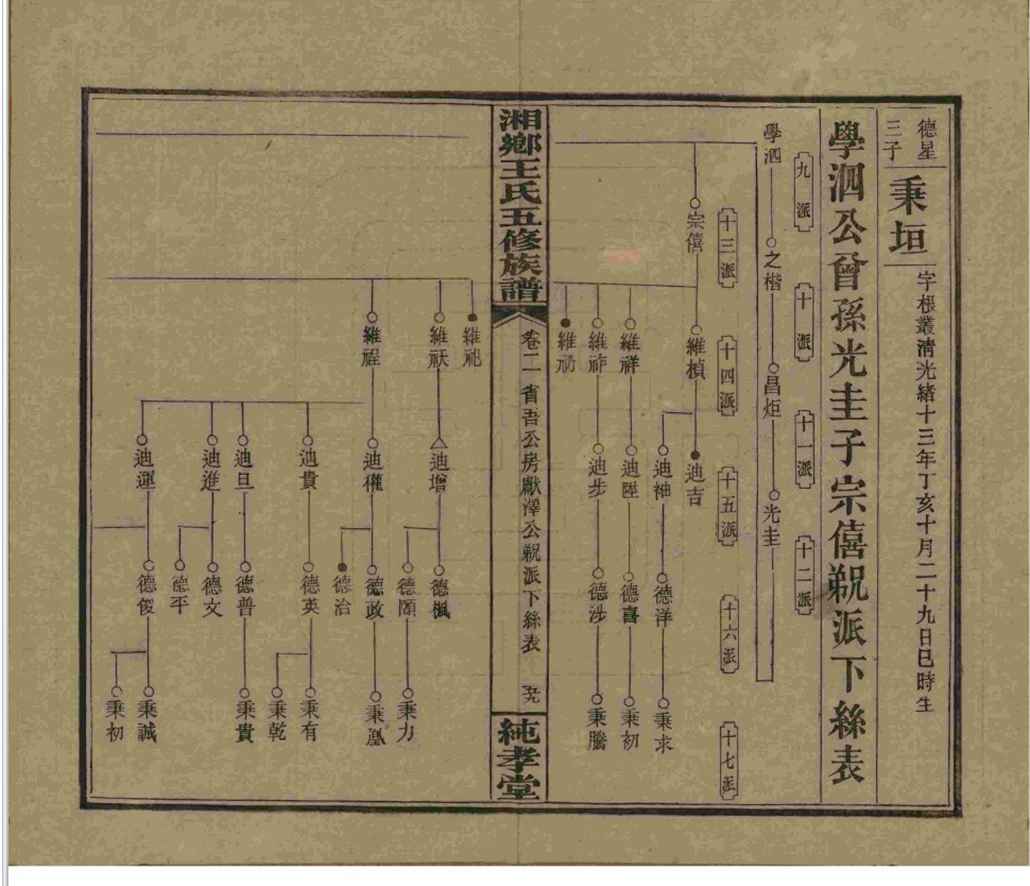 德星
三子
秉垣
字根叢清光緒十三年丁亥十月二十九日巳時生
學泗公曾孫光圭子宗僖派下絲表
九派
十派
十一派
十二派
學泗
之楷
昌炬
光圭
十三派
十四派
十五派
十六派
十七派
宗僖
維楨
迪吉
迪袖
德洋
秉求
維祥
迪陞
德喜
秉初
維祚
迪步
德涉
秉騰
維礽
湘鄉王氏五修族譜
卷二
省吾公房獻澤公派下絲表
純孝堂
維祀
維祆
迪增
德楓
德頤
秉力
維程
迪權
德政
德治
迪貴
德英
秉有
秉乾
迪旦
德普
秉貴
迪進
德文
德平
迪運
德俊
秉誠
秉初